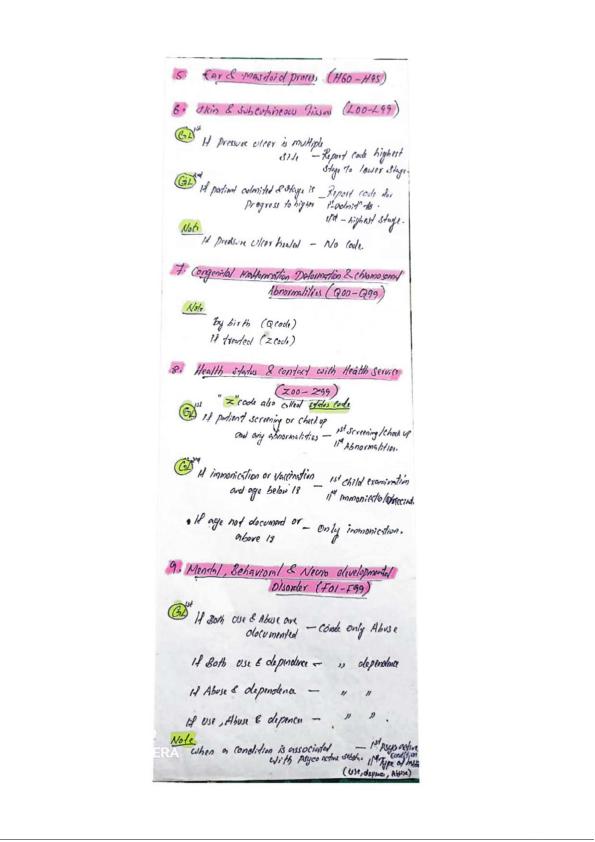 5. Ear & Mastoid process (H60-H95)
6. Skin & Subcutaneous Tissue (L00-L99)
GL 1st If Pressure ulcer is multiple
side - Report code highest
stage to lower stage.
GL 2nd If patient admitted & stage is - Report code for
Progress to higher 1st admit
IInd - highest stage.
Note
If pressure ulcer healed - No code.
7. Congenital malformation Deformation & chromosomal
Abnormalities (Q00-Q99)
Note
By birth (Q code)
If treated (Z code)
8. Health status & contact with Health Service
(Z00-Z99)
"Z" code also called status code
GL 1st If patient screening or check up
and any abnormalities - 1st screening/check up
IInd Abnormalities.
GL 2nd If immonication or vaccination - 1st child examination
and age below 18 IInd immonicat
• If age not document or - only immonication.
above 19
9. Mental, Behavioral & Neuro developmental
Disorder (F01-F99)
GL 1st If Both use & Abuse are
documented - code only Abuse
If Both use & dependence - " dependence
If Abuse & dependence - " "
If use, Abuse & depence - " ".
Note
when a condition is associated - 1st
with Psyco active IInd Type of
(use, depence, Abuse)
ERA